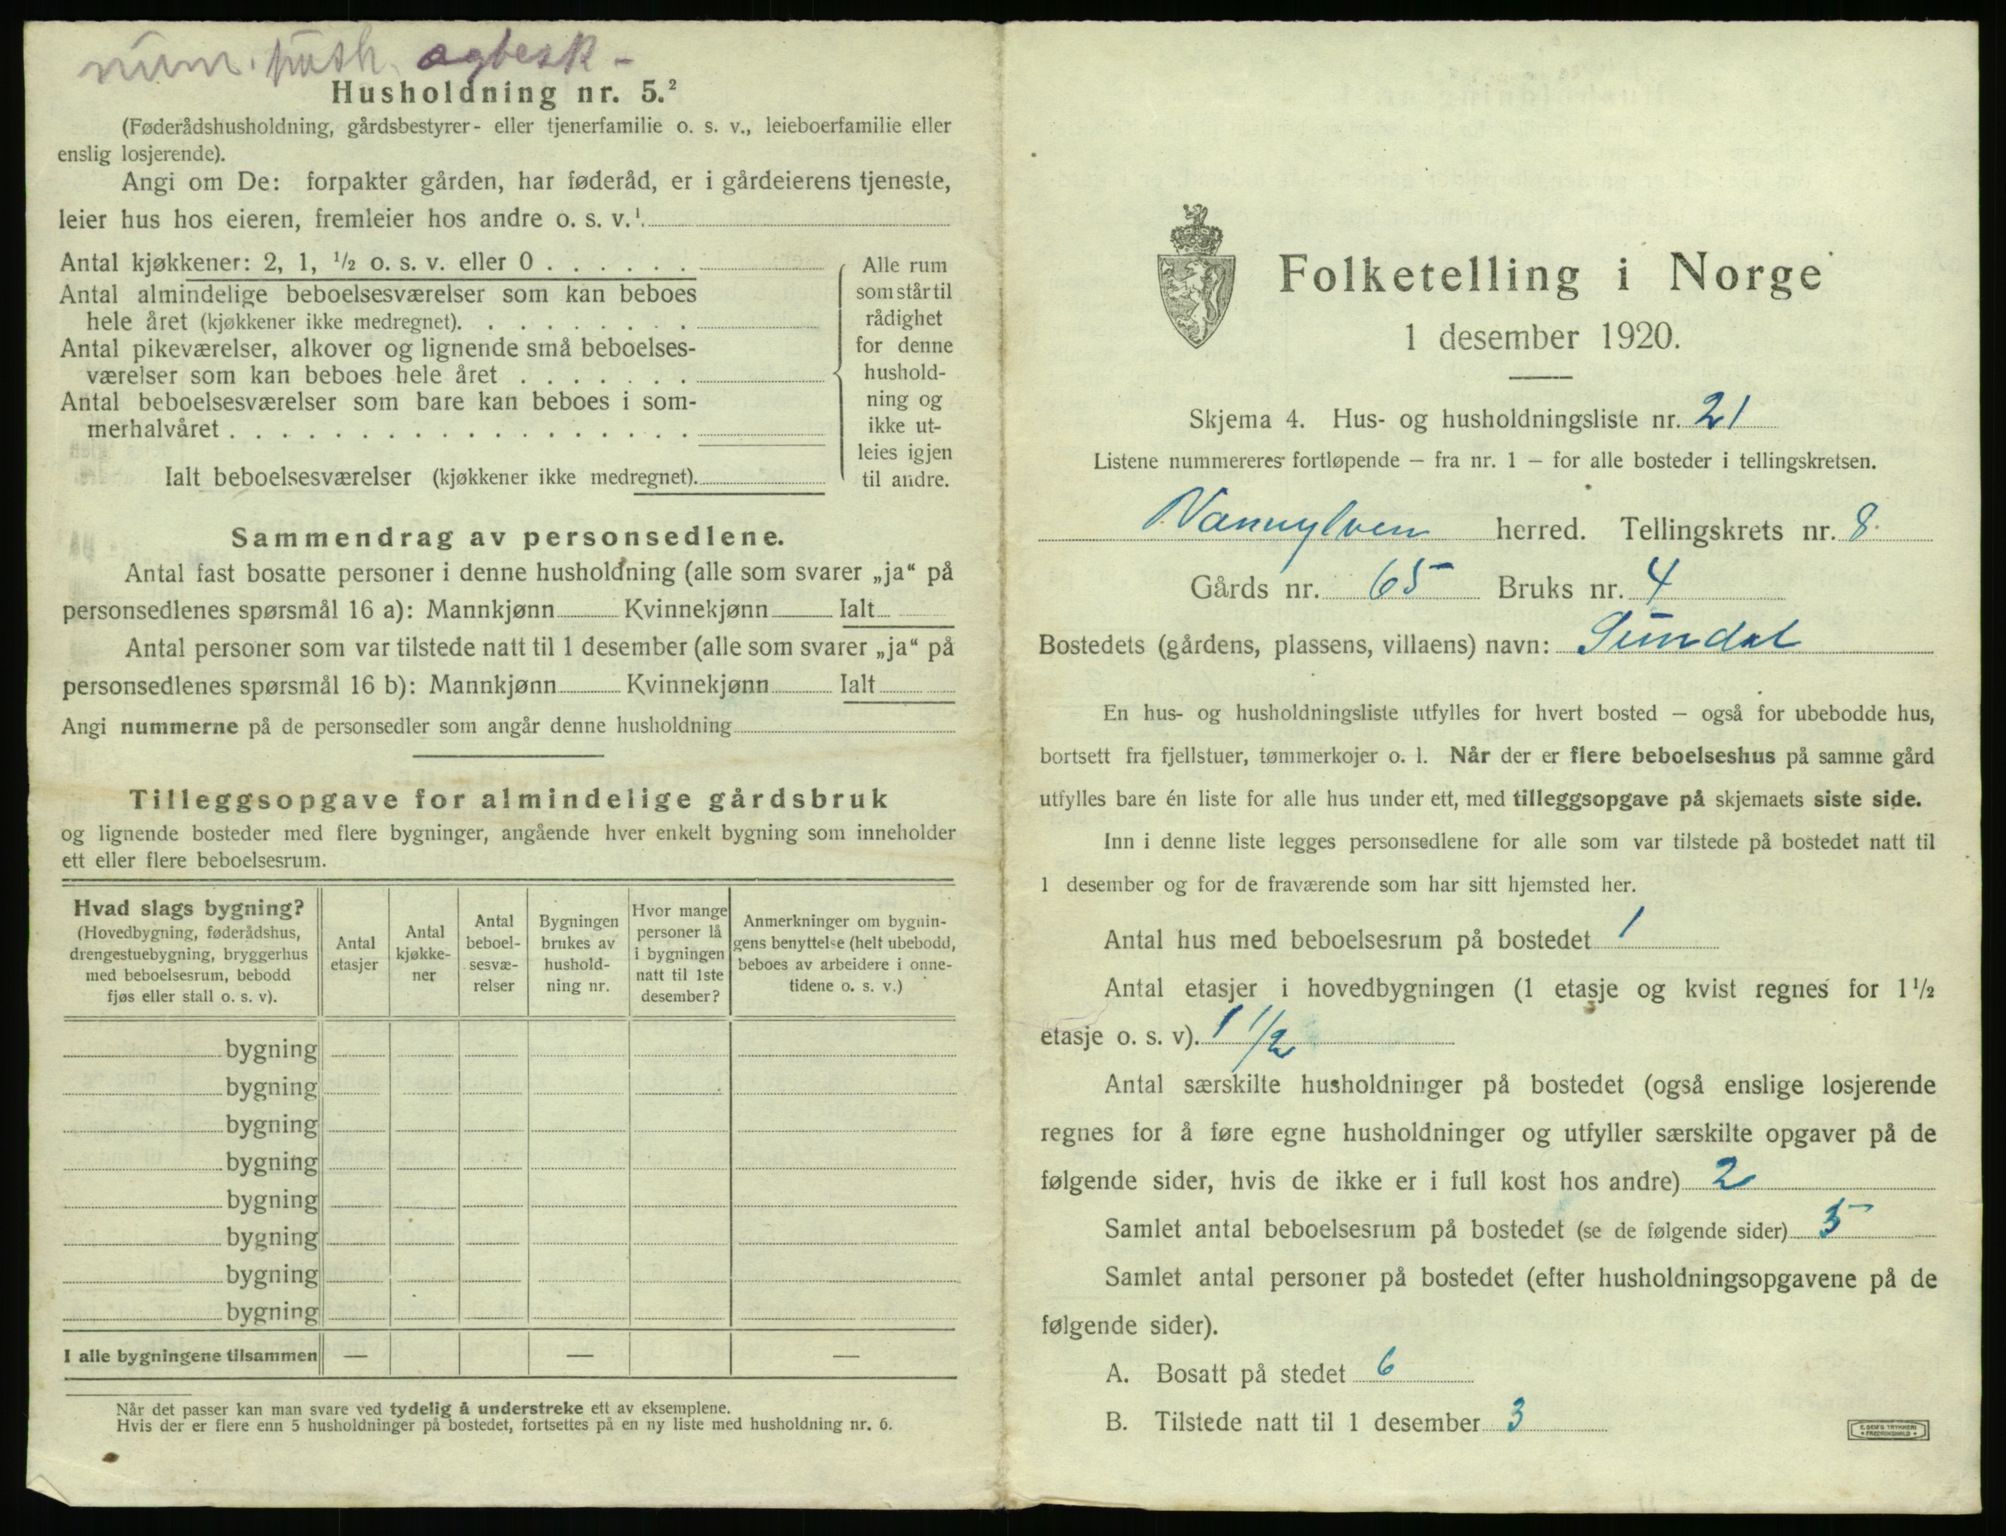 Husholdning nr. 5.²
(Føderådshusholdning, gårdsbestyrer- eller tjenerfamilie o. s. v., leieboerfamilie eller
enslig losjerende).
Angi om De: forpakter gården, har føderåd, er i gårdeierens tjeneste,
leier hus hos eieren, fremleier hos andre o. s. v.¹
Antal kjøkkener: 2, 1, ½ o. s. v. eller 0
Antal almindelige beboelsesværelser som kan beboes
hele året (kjøkkener ikke medregnet).
Antal pikeværelser, alkover og lignende små beboelses-
værelser som kan beboes hele året
Antal beboelsesværelser som bare kan beboes i som-
merhalvåret
Ialt beboelsesværelser (kjøkkener ikke medregnet).
Alle rum
som står til
rådighet
for denne
hushold-
ning og
ikke ut-
leies igjen
til andre.
Sammendrag av personsedlene.
Antal fast bosatte personer i denne husholdning (alle som svarer „ja“ på
personsedlenes spørsmål 16 a): Mannkjønn Kvinnekjønn Ialt
Antal personer som var tilstede natt til 1 desember (alle som svarer „ja“ på
personsedlenes spørsmål 16 b): Mannkjønn Kvinnekjønn Ialt
Angi nummerne på de personsedler som angår denne husholdning
Tilleggsopgave for almindelige gårdsbruk
og lignende bosteder med flere bygninger, angående hver enkelt bygning som inneholder
ett eller flere beboelsesrum.
Hvad slags bygning?
(Hovedbygning, føderådshus,
drengestuebygning, bryggerhus
med beboelsesrum, bebodd
fjøs eller stall o. s. v).
Antal
etasjer
Antal
kjøkke-
ner
Antal
beboel-
sesvæ-
relser
Bygningen
brukes av
hushold-
ning nr.
Hvor mange
personer lå
i bygningen
natt til 1ste
desember?
Anmerkninger om bygnin-
gens benyttelse (helt ubebodd,
beboes av arbeidere i onne-
tidene o. s. v.)
bygning
bygning
bygning
bygning
bygning
bygning
bygning
bygning
I alle bygningene tilsammen — — —
Når det passer kan man svare ved tydelig å understreke ett av eksemplene.
Hvis der er flere enn 5 husholdninger på bostedet, fortsettes på en ny liste med husholdning nr. 6.
Folketelling i Norge
1 desember 1920.
Skjema 4. Hus- og husholdningsliste nr. 21
Listene nummereres fortløpende – fra nr. 1 – for alle bosteder i tellingskretsen.
Vannylven herred. Tellingskrets nr. 8.
Gårds nr. 65 Bruks nr. 4
Bostedets (gårdens, plassens, villaens) navn: Sundal
En hus- og husholdningsliste utfylles for hvert bosted – også for ubebodde hus,
bortsett fra fjellstuer, tømmerkojer o. l. Når der er flere beboelseshus på samme gård
utfylles bare én liste for alle hus under ett, med tilleggsopgave på skjemaets siste side.
Inn i denne liste legges personsedlene for alle som var tilstede på bostedet natt til
1 desember og for de fraværende som har sitt hjemsted her.
Antal hus med beboelsesrum på bostedet 1
Antal etasjer i hovedbygningen (1 etasje og kvist regnes for 1 ½
etasje o. s. v). 1 ½
Antal særskilte husholdninger på bostedet (også enslige losjerende
regnes for å føre egne husholdninger og utfyller særskilte opgaver på de
følgende sider, hvis de ikke er i full kost hos andre) 2
Samlet antal beboelsesrum på bostedet (se de følgende sider)
Samlet antal personer på bostedet (efter husholdningsopgavene på de
følgende sider).
A. Bosatt på stedet 6
B. Tilstede natt til 1 desember 3